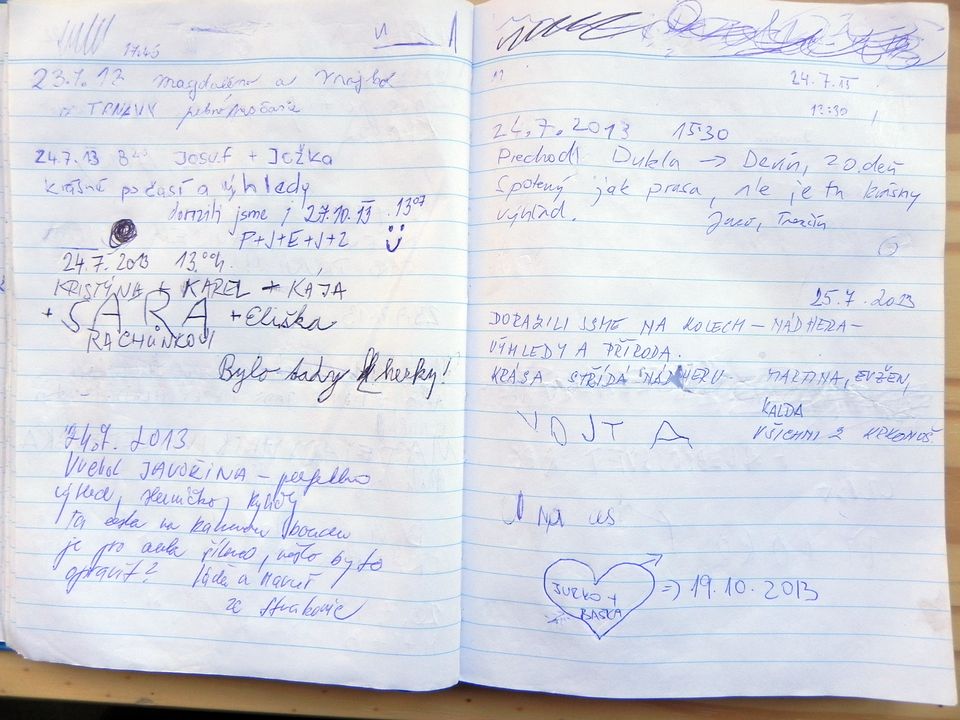 17:45
23.7.13 Magdaléna a
z TRNAVY
24.7.13 Josuf + Ježka
krásné počasí a výhledy
dorazili jsme i 27.10.13 13:07
P+J+E+J+2
24.7.2013 13.00h.
KRISTÝNA + KAREL + KÁJA
+ SÁRA + Eliška
RACHŮNKOVI
Bylo tady herky!
24.7.2013
Vrchol JAVOŘINA – perfektno
výhled, sluníčko,
Ta cesta na
je pro auta šílená, nešlo by to
opravit? Láďa a
ze Strakonic
24.7.13
12:30
24.7.2013 15:30
Přechod: Dukla → Devín, 20.deň
Spotený jak prasa, ale je tu krásny
výhľad. Jaro, Trenčín
25.7.2013
DORAZILI JSME NA KOLECH – NÁDHERA –
VÝHLEDY A PŘÍRODA.
KRÁSA STŘÍDÁ NÁDHERU MARTINA, EVŽEN,
KALDA
VOJTA VŠICHNI Z KRKONOŠ
JURKO +
BAŠKA => 19.10.2013